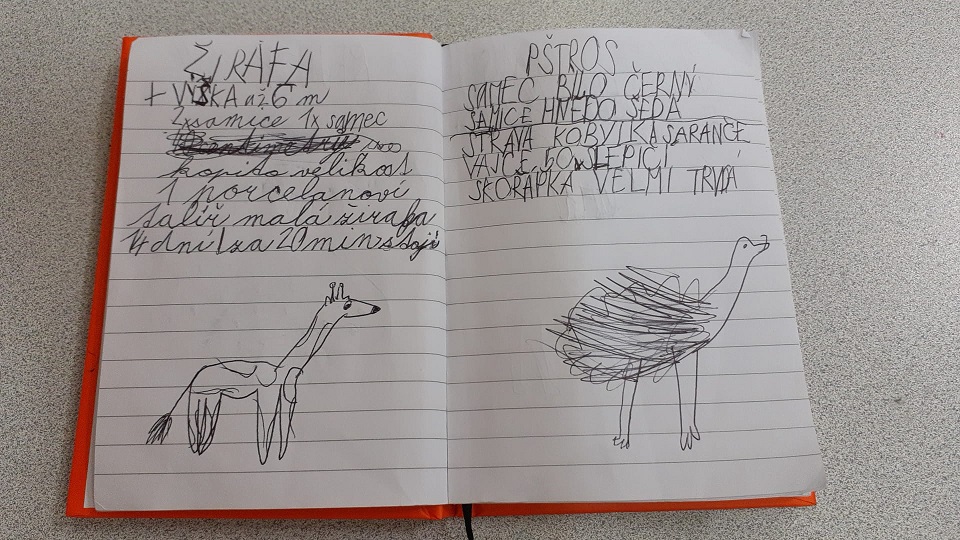 ŽIRAFA
+ VÝŠKA až 6 m
2xsamice 1x samec
kopito velikost
1 porcelánoví
talíř malá žirafa
14 dní/za 20min stojí
PŠTROS
SAMEC BÍLO ČERNÝ
SAMICE HNĚDO ŠEDÁ
STRAVA KOBYLKA SARANČE
VAJCE SLEPIČÍ
SKOŘÁPKA VELMI TRVDÁ